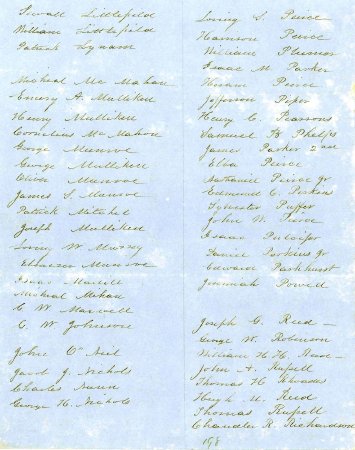 Sewall Littlefield
William Littlefield
Patrick Lynam
Micheal Mc Mahan
Emery A. Mulliken
Henry Mulliken
Cornelius Mc Mahon
George Munroe
George Mulliken
Oliver Munroe
James S. Munroe
Patrick Mitchel
Joseph Mulliken
Loring W. Muzzey
Ebenezer Munroe
Isaac
Micheal Mahan
C. W. Maxwell
C. W. Johnson
John O'Neil
Jacob J. Nichols
Charles Nunn
George H. Nichols
Loring S. Pierce
Harrison Peirce
William Plumer
Isaac M. Parker
Hiram Pierce
Jefferson Piper
Henry C. Pearsons
Samuel B Phelps
James Parker 2nd
Eliza Peirce
Nathaniel Pierce Jr
Emmons C. Perkins
Sylvester Puffer
John W. Pierce
Isaac Pulcifer
Daniel Parkins Jr
Edward Parkhurst
Jeremiah Powell
Joseph G. Reed
George W. Robinson
William H. H. Reed
John A. Russell
Thomas H. Rhoades
Hugh M. Reed
Thomas Russell
Chandler R. Richardson
198